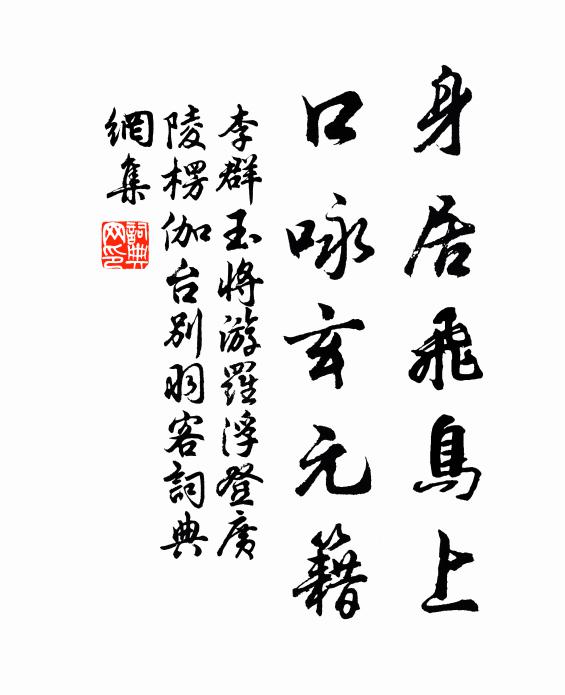 身居飛鳥上
口咏玄元籍
李群玉將游羅浮登廣
陵楞伽台別羽客詞典
網集
詞典网印